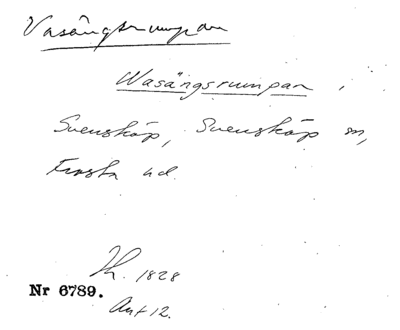 Vasångsrumpan
Wasängsrumpan,
Svensköp, Svensköp sn,
Frosta hd.
1828
Nr 6789.
Ant 12.